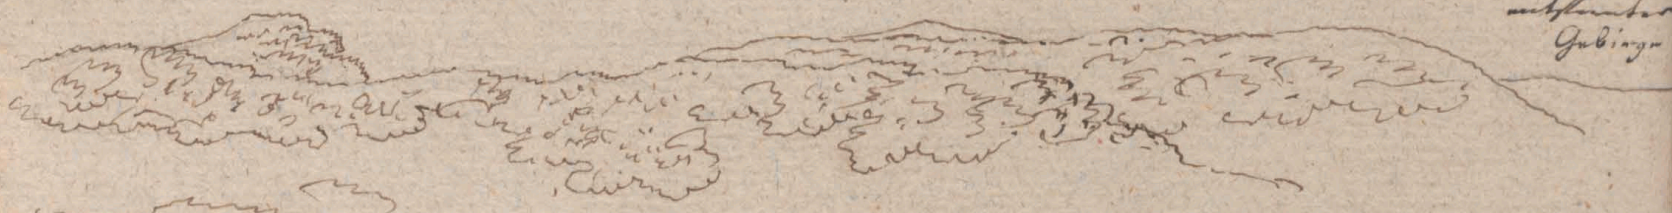 entfernter
Gebirge